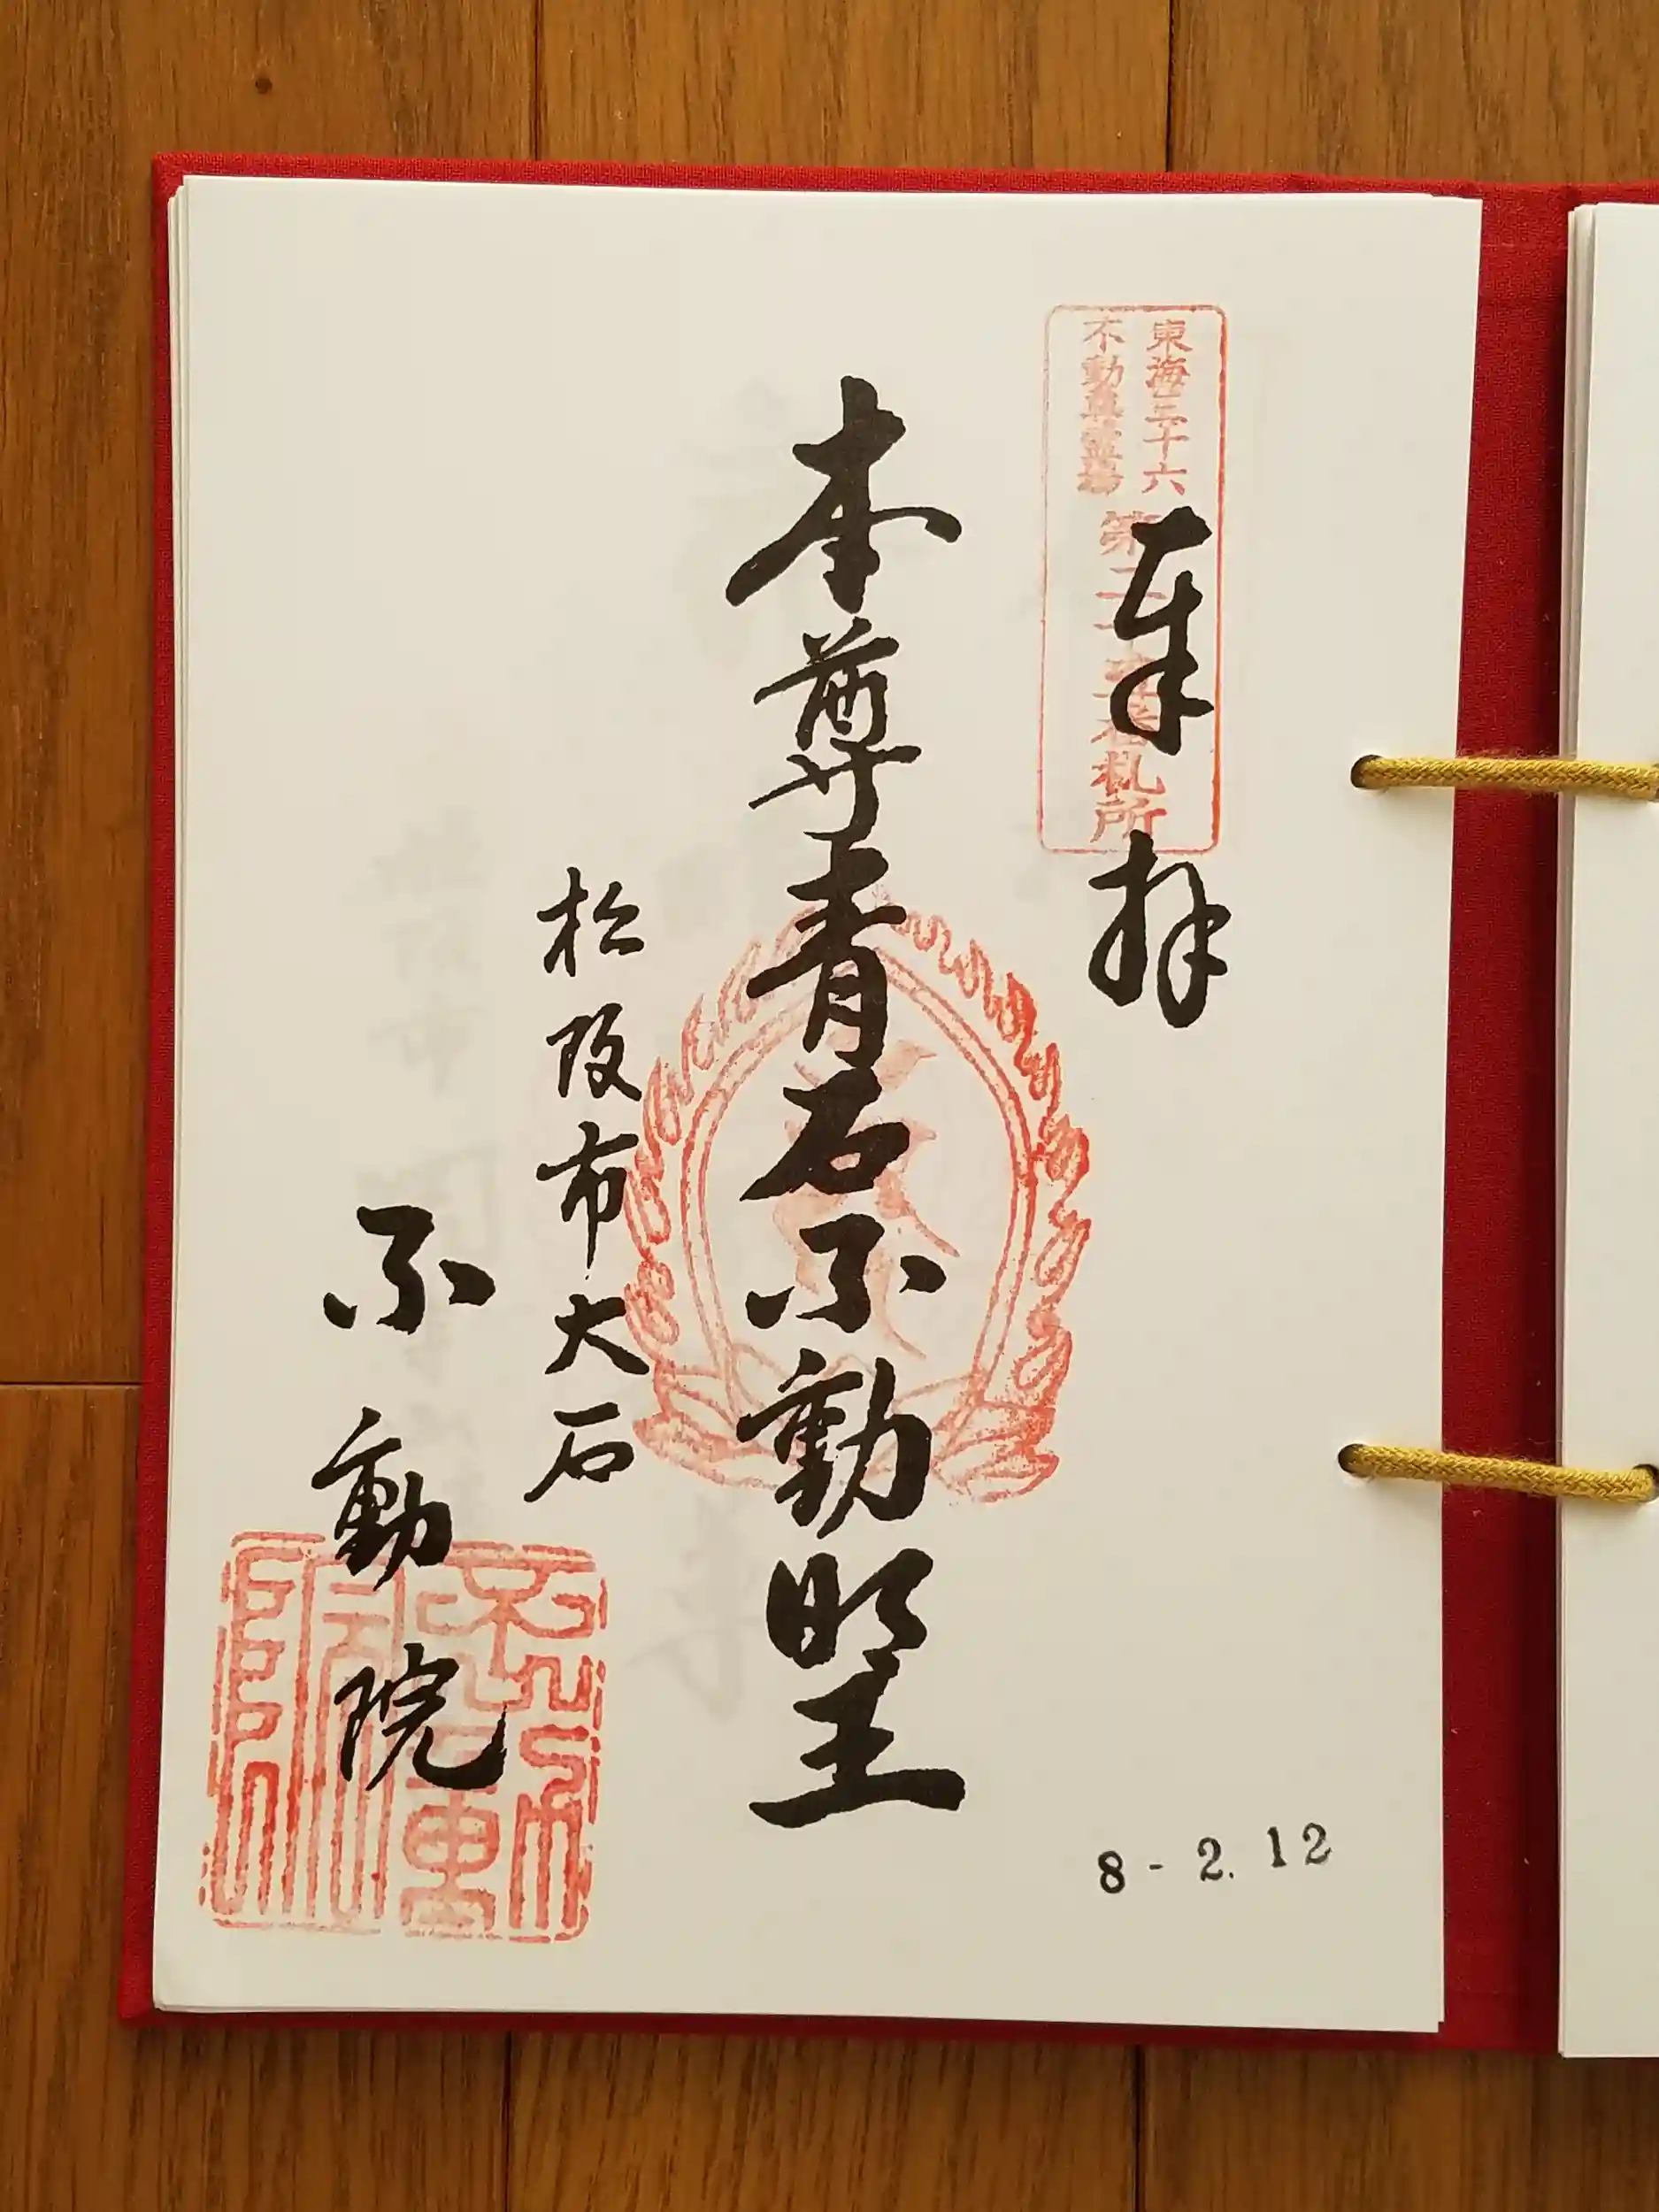 東海三十六
不動尊霊場
札所
奉拝
本尊青石不動明王
松阪市大石
不動院
不動院
8-2.12